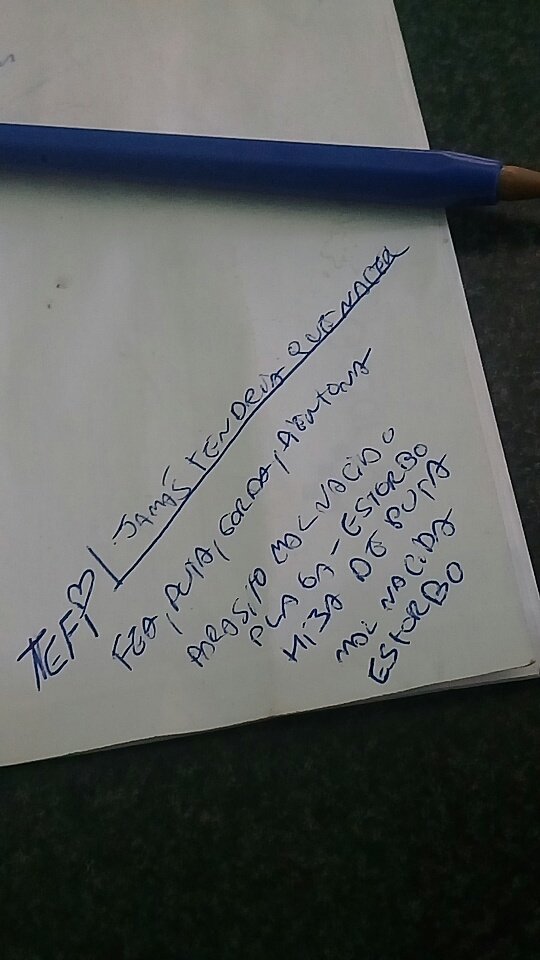 TEFI
JAMÁS TENDRIA QUE NACER
FEA, PUTA, GORDA, DIENTONA
PARASITO MAL NACIDO
PLAGA - ESTORBO
HIJA DE PUTA
MAL NACIDA
ESTORBO